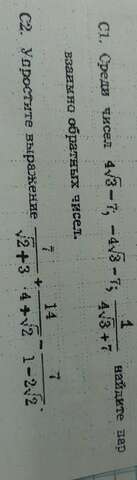 С1. Среди чисел 4√3−7; −4√3−7; 1/(4√3+7) найдите пар
взаимно обратных чисел.
С2. Упростите выражение 7/(√2+3) + 14/(4+√2) − 7/(1−2√2).